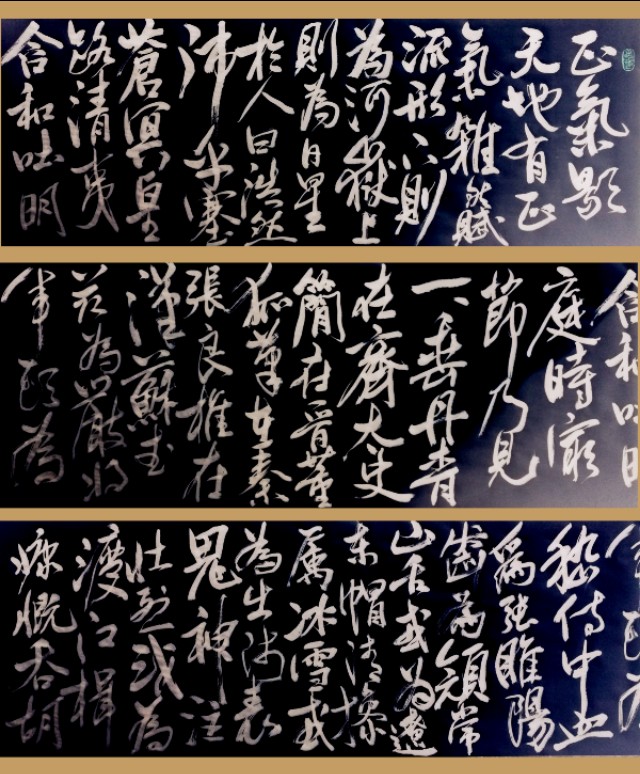 正氣歌
天地有正
氣雜然賦
流形下則
為河嶽上
則為日星
於人曰浩然
沛乎塞
蒼冥皇
路清夷
含和吐明
含和吐明
庭時窮
節乃見
一一垂丹青
在齊太史
簡在晉董
狐筆在秦
張良椎在
漢蘇武
節為嚴將
軍頭為
軍頭為
嵇侍中血
為張睢陽
齒為顏常
山舌或為遼
東帽清操
厲冰雪或
為出師表
鬼神泣
壯烈或為
渡江楫
慷慨吞胡